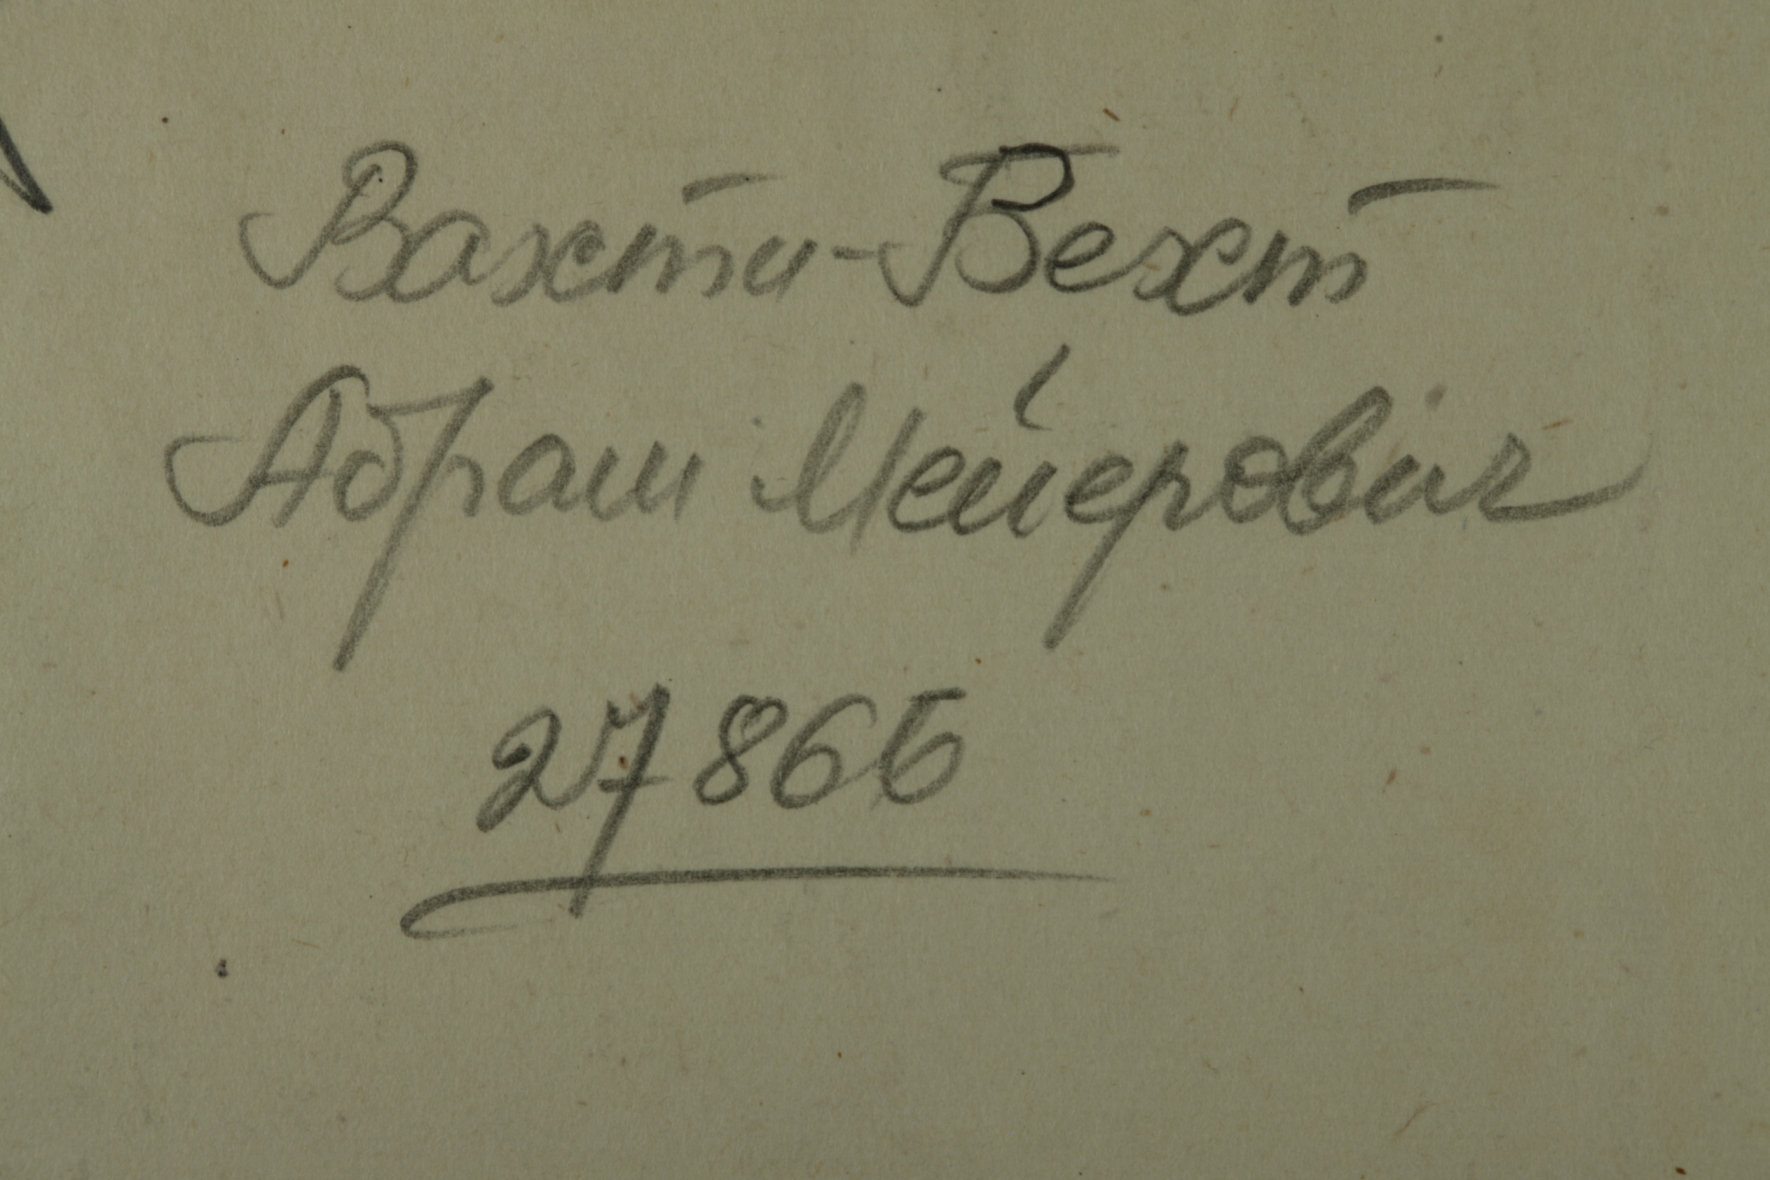 Вахти-Вехт
Абрам Мейерович
27866